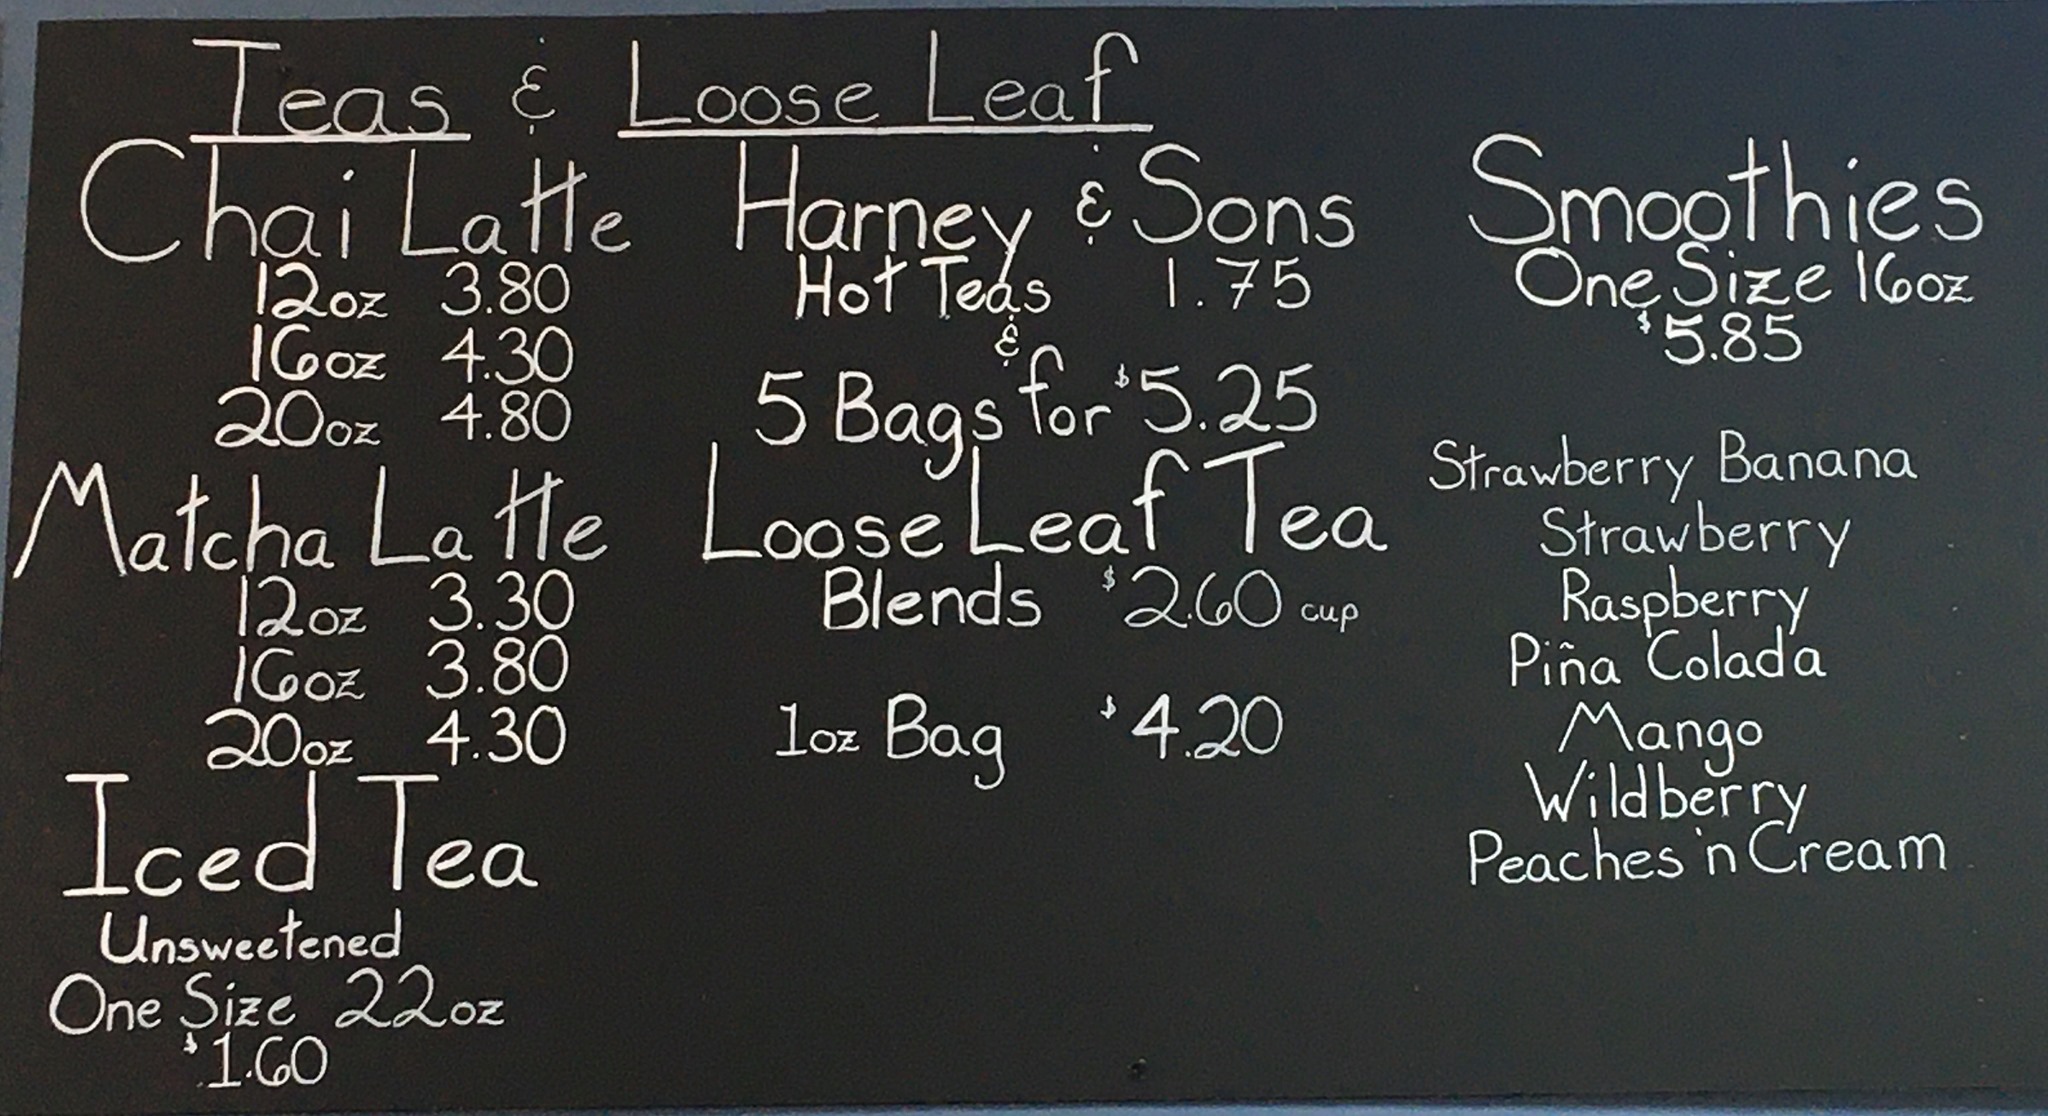 Teas & Loose Leaf
Chai Latte
12oz 3.80
16oz 4.30
20oz 4.80
Matcha Latte
12oz 3.30
16oz 3.80
20oz 4.30
Iced Tea
Unsweetened
One Size 22oz
$1.60
Harney & Sons
Hot Teas 1.75
&
5 Bags for $5.25
Loose Leaf Tea
Blends $2.60 cup
1oz Bag $4.20
Smoothies
One Size 16oz
$5.85
Strawberry Banana
Strawberry
Raspberry
Piña Colada
Mango
Wildberry
Peaches 'n Cream